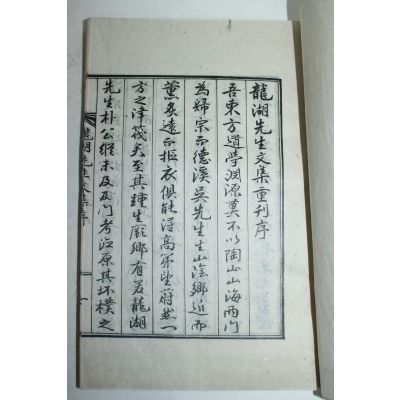 龍湖先生文集重刊序
吾東方道學淵源莫不以陶山山海兩門
為歸宗而德溪吳先生生山陰鄕近而
薰炙遠而摳衣俱能得高弟望蔚然一
方之津筏矣至其踵生厥鄕有若龍湖
先生朴公雖未及及門考沿原其坏樸之
龍湖先生文集序
一